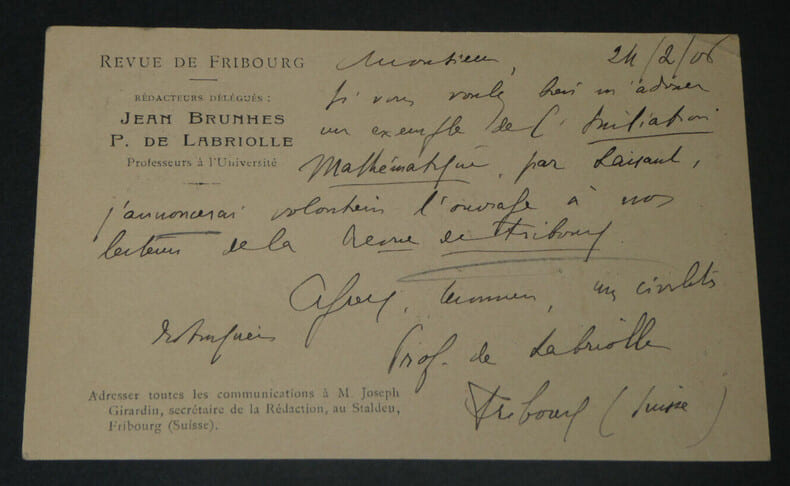 REVUE DE FRIBOURG
RÉDACTEURS DÉLÉGUÉS :
JEAN BRUNHES
P. DE LABRIOLLE
Professeurs à l'Université
Monsieur, 24/2/06
Si vous voulez bien m'adresser
un exemple de l'Initiation
Mathématique, par Laisant,
j'annoncerai volontiers l'ouvrage à nos
lecteurs de la Revue de Fribourg.
Agréez, Monsieur, mes civilités
Prof. de Labriolle
Fribourg (Suisse)
Adresser toutes les communications à M. Joseph
Girardin, secrétaire de la Rédaction, au Stalden,
Fribourg (Suisse).